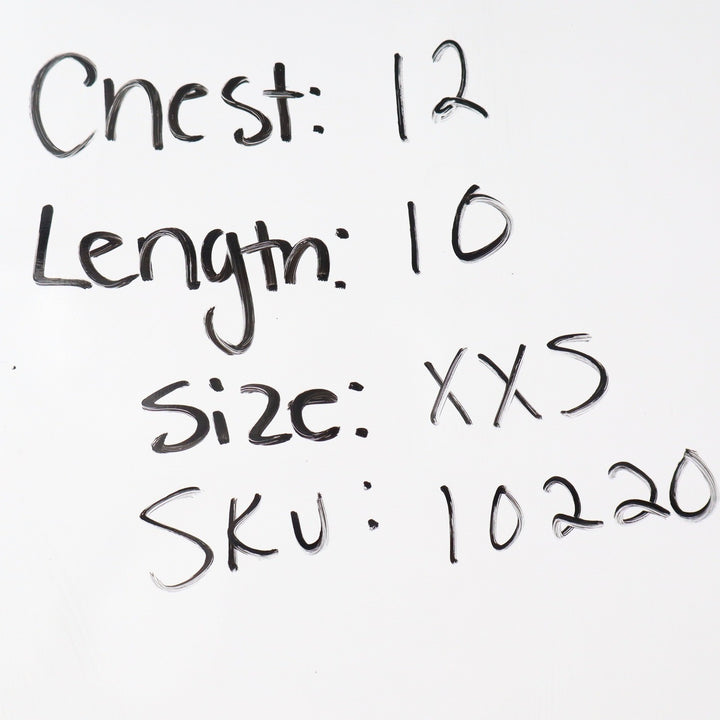 Chest: 12
Length: 10
Size: XXS
SKU: 10220